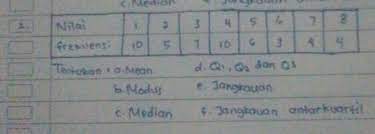 c. Median
2. Nilai 1 2 3 4 5 6 7 8
frekuensi 10 5 7 10 6 3 4 4
Tentukan : a. Mean d. Q1, Q2 dan Q3
b. Modus e. Jangkauan
c. Median f. Jangkauan antarkuartil